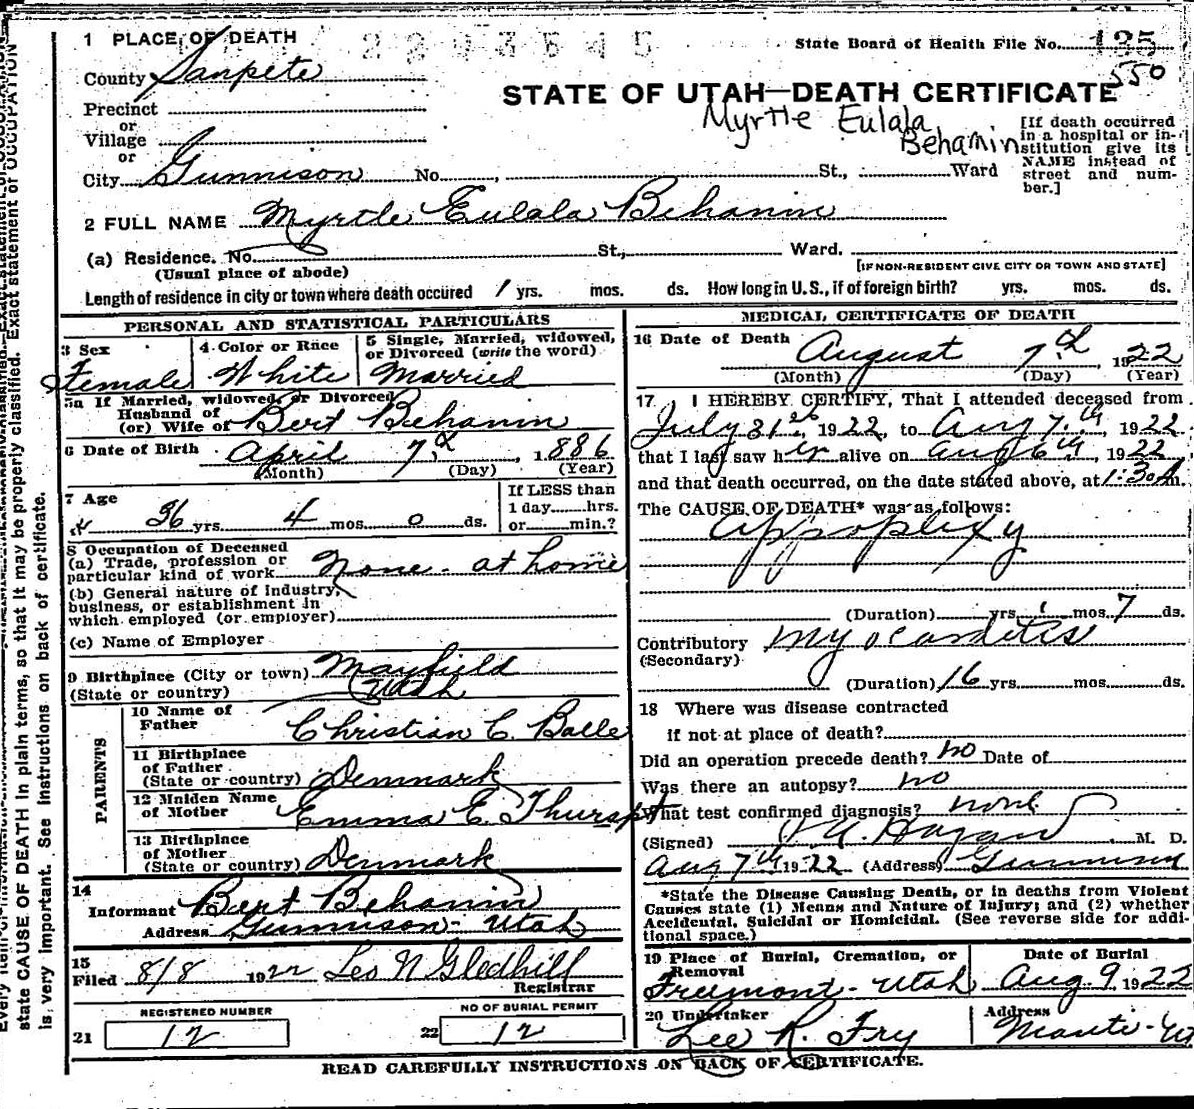 1 PLACE OF DEATH
State Board of Health File No. 135
550
County Sanpete
STATE OF UTAH—DEATH CERTIFICATE
Myrtle Eulala
Behamin
Precinct
or
Village
or
City Gunnison No. , St., Ward
[If death occurred
in a hospital or in-
stitution give its
NAME instead of
street and num-
ber.]
2 FULL NAME Myrtle Eulala Behanin
(a) Residence. No. St., Ward.
(Usual place of abode)
[IF NON-RESIDENT GIVE CITY OR TOWN AND STATE]
Length of residence in city or town where death occured 1 yrs. mos. ds. How long in U. S., if of foreign birth? yrs. mos. ds.
PERSONAL AND STATISTICAL PARTICULARS
3 Sex
Female
4 Color or Race
White
5 Single, Married, widowed,
or Divorced (write the word)
Married
5a If Married, widowed, or Divorced
Husband of
(or) Wife of Bert Behanin
6 Date of Birth April 7th, 1886
(Month) (Day) (Year)
7 Age
36 yrs. 4 mos. 0 ds.
If LESS than
1 day hrs.
or min.?
8 Occupation of Deceased
(a) Trade, profession or
particular kind of work None - at home
(b) General nature of Industry,
business, or establishment in
which employed (or employer)
(c) Name of Employer
9 Birthplace (City or town) Mayfield
(State or country) Utah
PARENTS
10 Name of
Father Christian C. Balle
11 Birthplace
of Father
(State or country) Denmark
12 Maiden Name
of Mother Emma E. Thurspt
13 Birthplace
of Mother
(State or country) Denmark
14
Informant Bert Behanin
Address Gunnison - Utah
15
Filed 8/8 1922 Leo N Gledhill
Registrar
REGISTERED NUMBER
21 12
NO OF BURIAL PERMIT
22 12
MEDICAL CERTIFICATE OF DEATH
16 Date of Death August 7th, 1922
(Month) (Day) (Year)
17 I HEREBY CERTIFY, That I attended deceased from
July 31st, 1922, to Aug 7th, 1922
that I last saw her alive on Aug 6th, 1922
and that death occurred, on the date stated above, at 1:30 A m.
The CAUSE OF DEATH* was as follows:
Appoplexy
(Duration) yrs. 1 mos. 7 ds.
Contributory Myocarditis
(Secondary)
(Duration) 16 yrs. mos. ds.
18 Where was disease contracted
if not at place of death?
Did an operation precede death? no Date of
Was there an autopsy? no
What test confirmed diagnosis? none
(Signed) Hagan M. D.
Aug 7th 1922 (Address) Gunnison
*State the Disease Causing Death, or in deaths from Violent
Causes state (1) Means and Nature of Injury; and (2) whether
Accidental, Suicidal or Homicidal. (See reverse side for addi-
tional space.)
19 Place of Burial, Cremation, or
Removal
Freemont - Utah
Date of Burial
Aug 9 1922
20 Undertaker
Lee R. Fry
Address
Manti - Ut
READ CAREFULLY INSTRUCTIONS ON BACK OF CERTIFICATE.
state CAUSE OF DEATH in plain terms, so that it may be properly classified. Exact statement of OCCUPATION
is very important. See instructions on back of certificate.